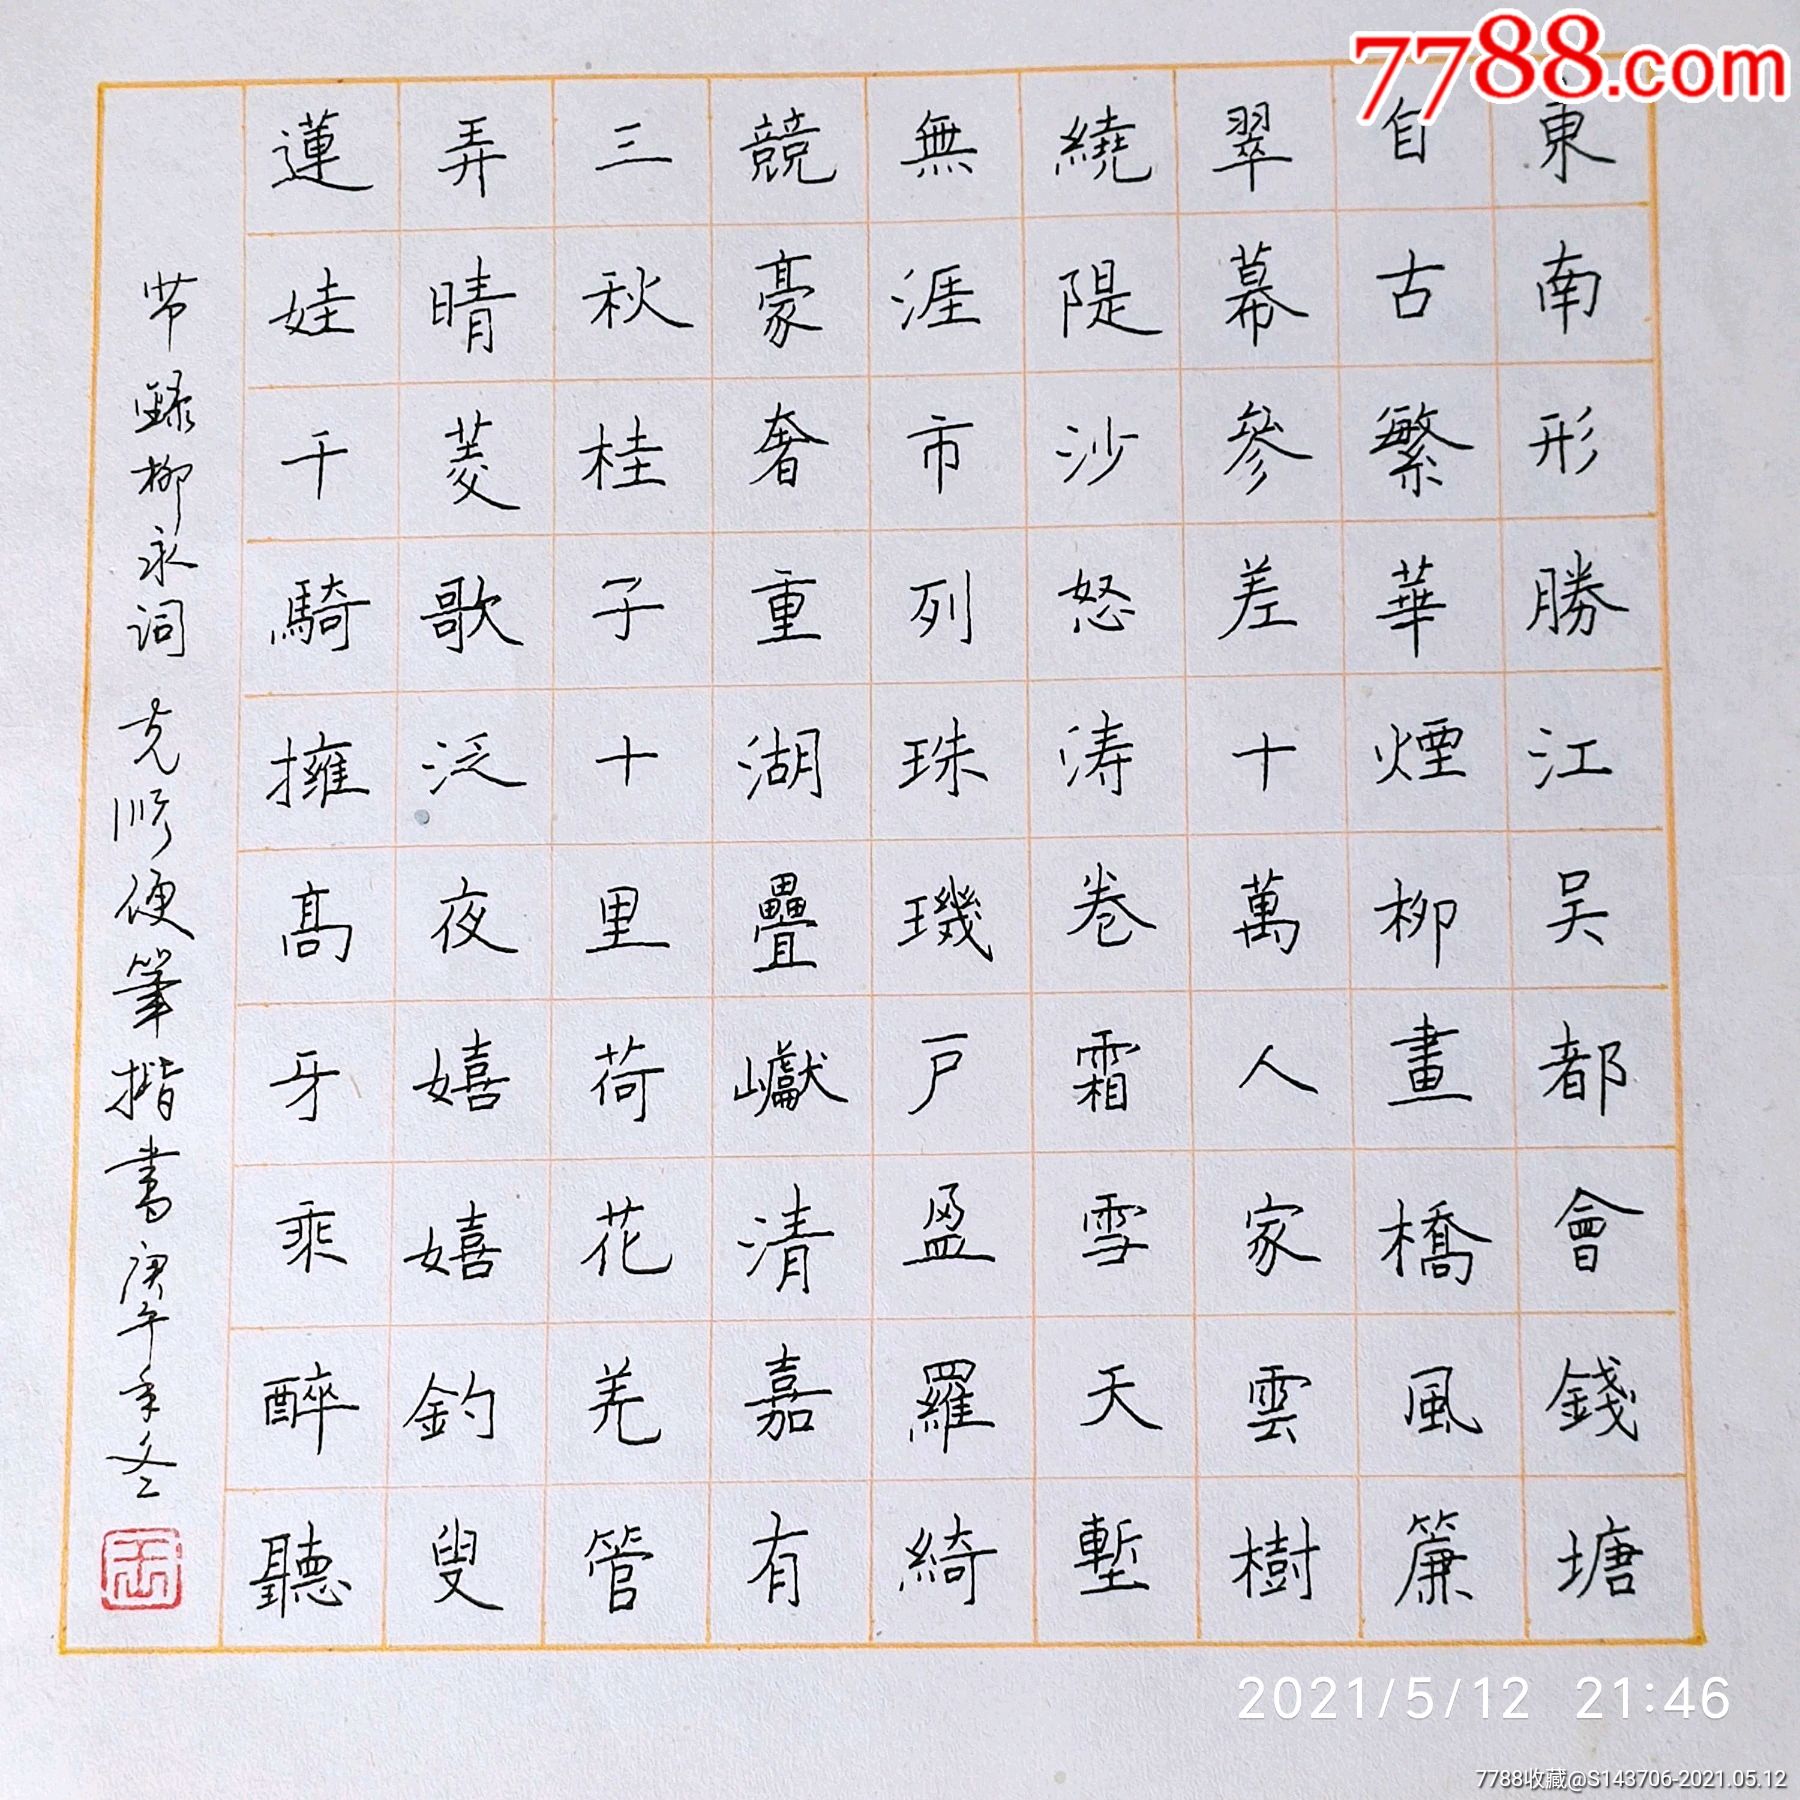 7788.com
東南形勝江吴都會錢塘
自古繁華煙柳畫橋風簾
翠幕參差十萬人家雲樹
繞隄沙怒涛卷霜雪天塹
無涯市列珠璣戶盈羅綺
競豪奢重湖疊巘清嘉有
三秋桂子十里荷花羌管
弄晴菱歌泛夜嬉嬉釣叟
蓮娃千騎擁髙牙乘醉聽
节録柳永词 克修便筆楷書 庚午年冬
2021/5/12 21:46
7788收藏@S143706-2021.05.12